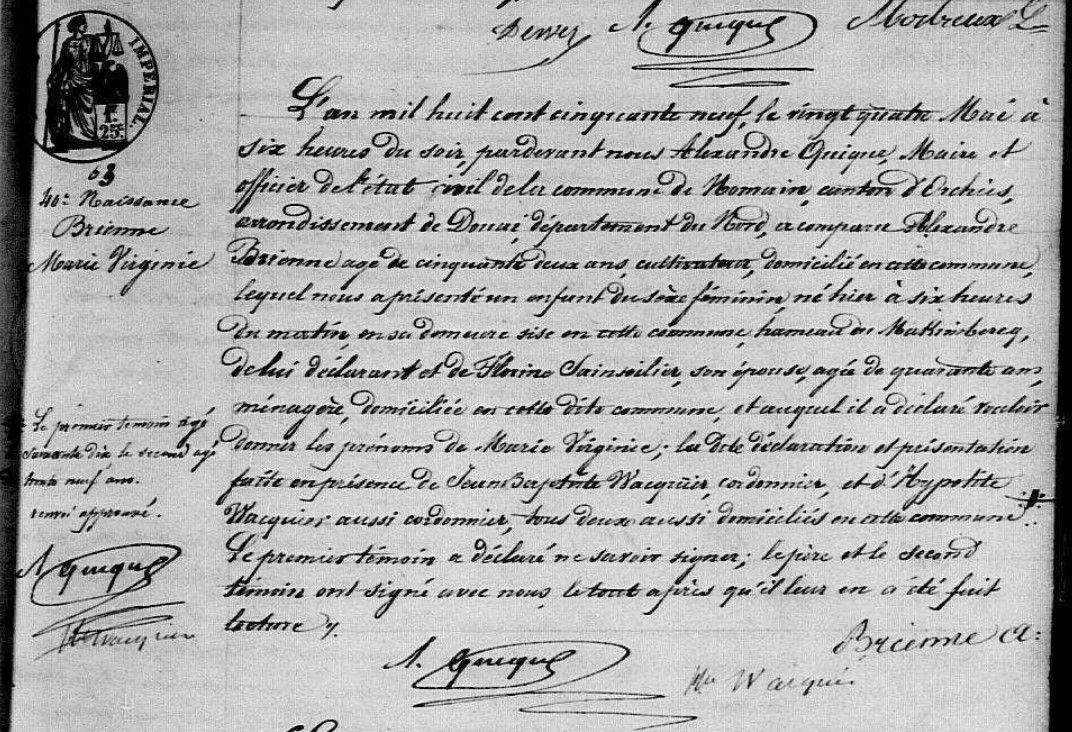 Dewez A. Quique
IMPERIAL.
25c
63
40e Naissance
Brienne
Marie Virginie
L'an mil huit cent cinquante neuf, le vingt quatre Mai à
six heures du soir, pardevant nous Alexandre Quique, Maire et
officier de l'état civil de la commune de Nomain, canton d'Orchies,
arrondissement de Douai, département du Nord, a comparu Alexandre
Brienne agé de cinquante deux ans, cultivateur, domicilié en cette commune,
lequel nous a présenté un enfant du sèxe féminin, né hier à six heures
du matin, en sa demeure sise en cette commune, hameau du
de lui déclarant et de Florine Sainseilier, son épouse, agée de quarante ans,
ménagère, domiciliée en cette dite commune, et auquel il a déclaré vouloir
donner les prénoms de Marie Virginie; la Dite déclaration et présentation
faite en présence de Jean Baptiste Wacquier, cordonnier, et d'Hypolite
Wacquier aussi cordonnier, tous deux aussi domiciliés en cette commune.
Le premier témoin a déclaré ne savoir signer; le père et le second
témoin ont signé avec nous, le tout après qu'il leur en a été fait
lecture
Le premier temoin agé
soixante dix le second agé
trente neuf ans.
renvoi approuvé.
A Quique
Wacquier
A. Quique
Brienne A:
Wacquier